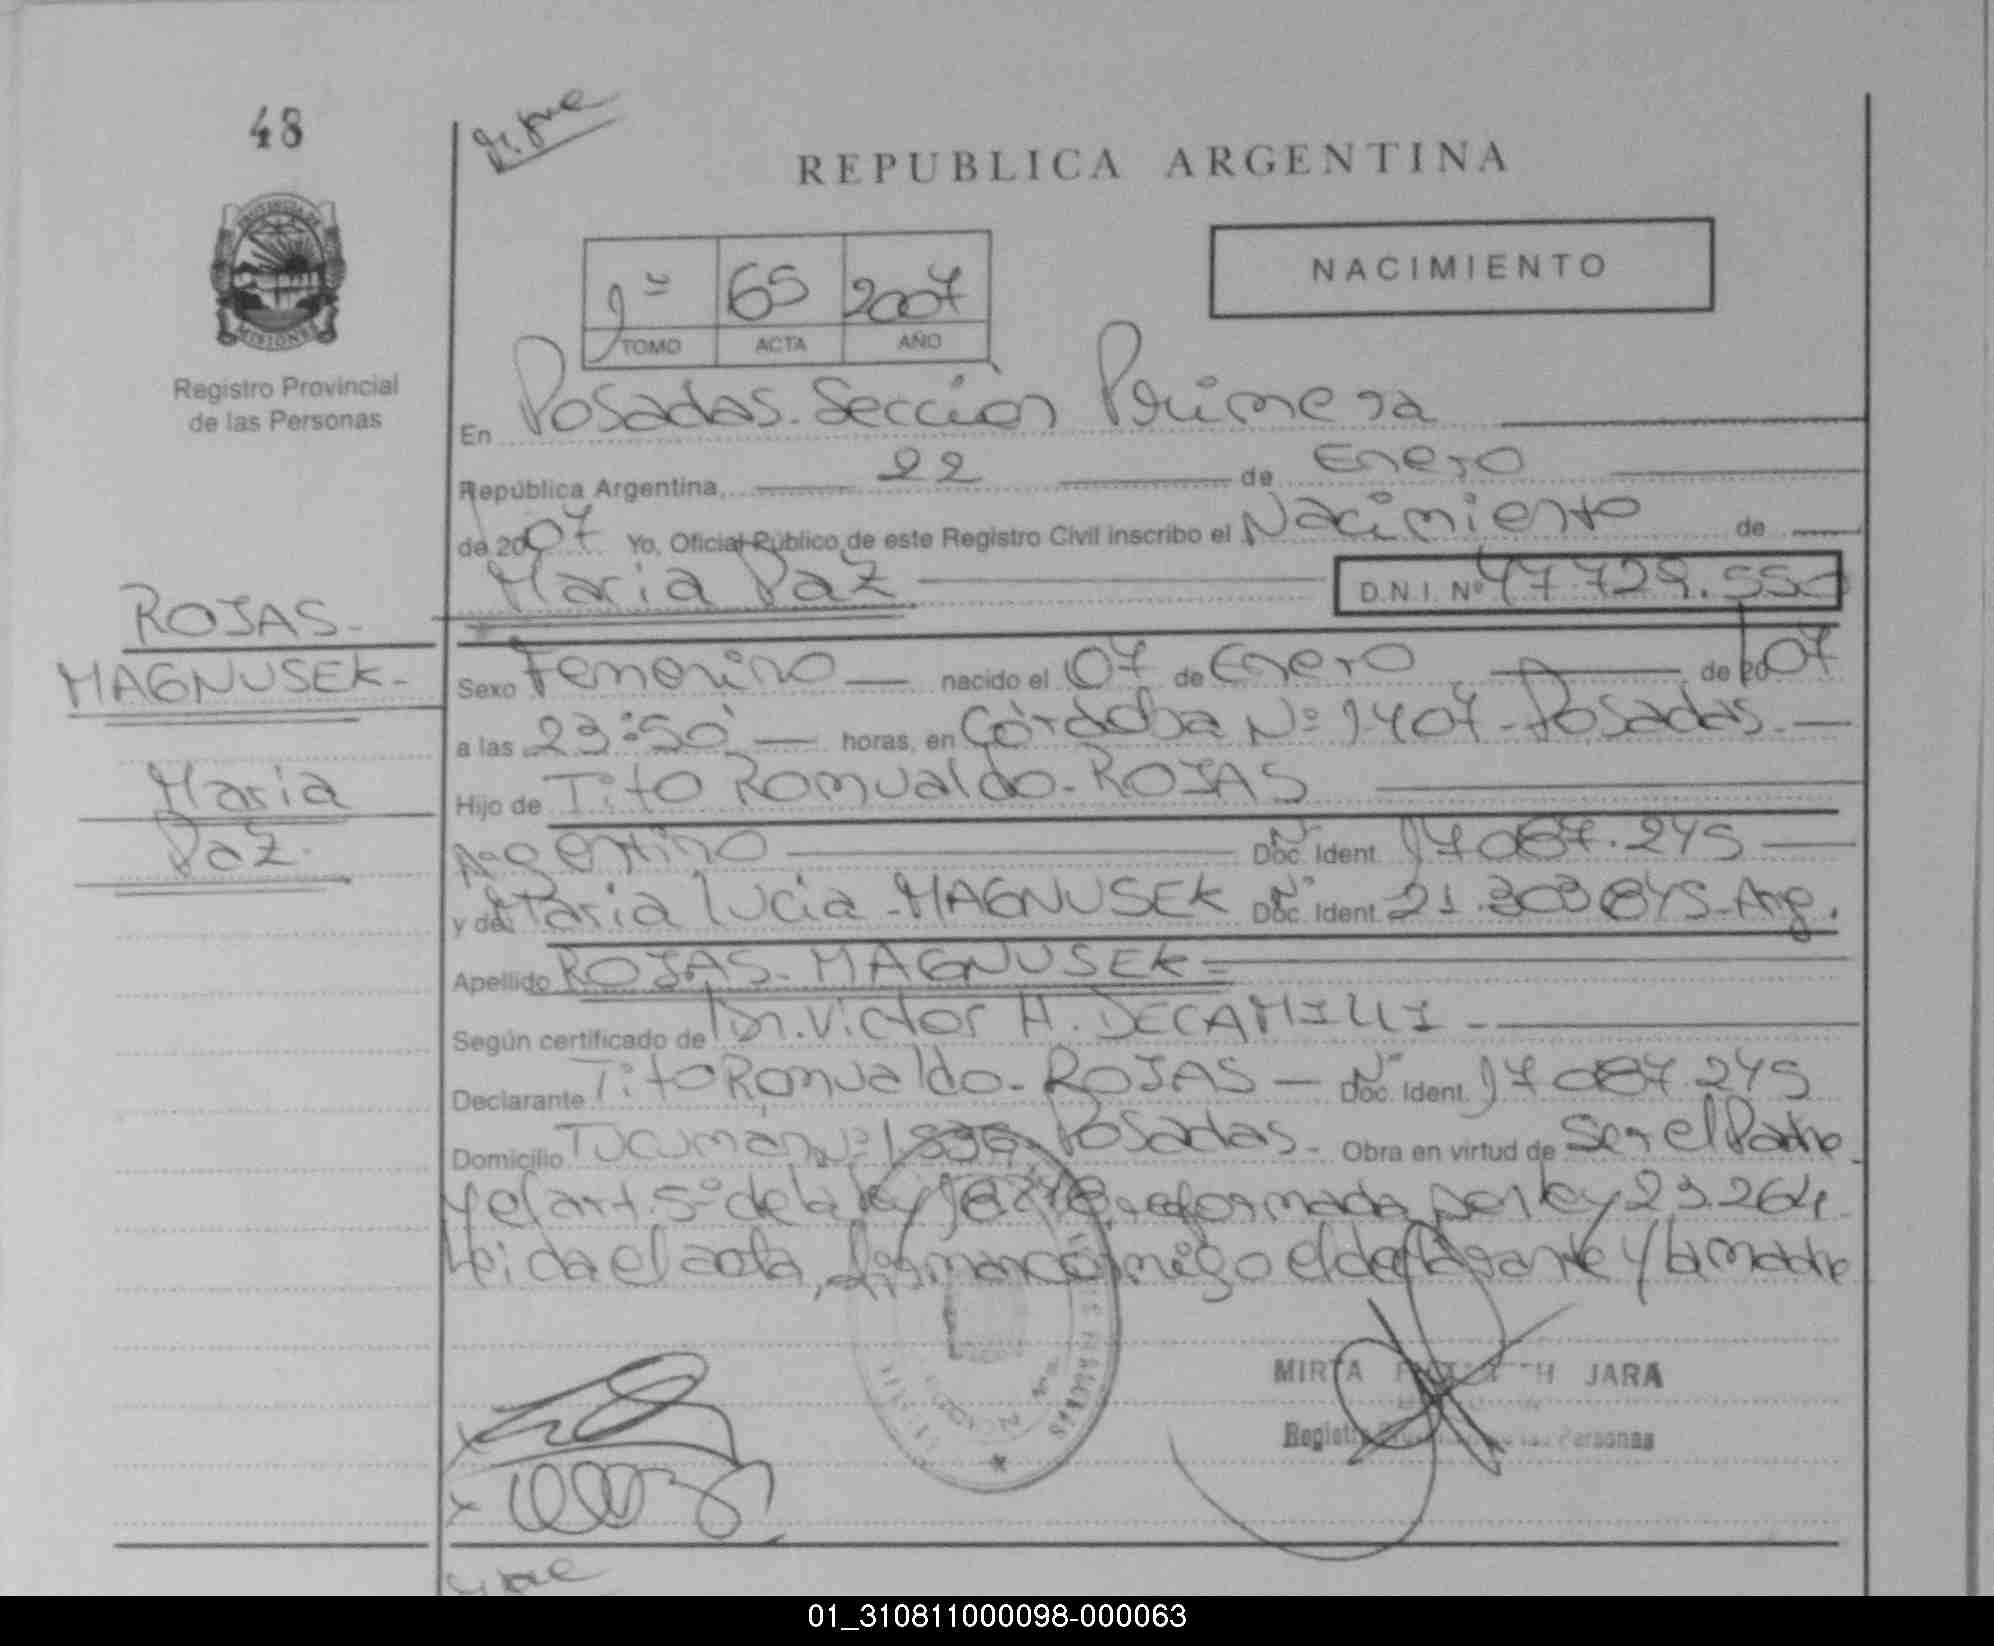 48
Sigue
REPUBLICA ARGENTINA
PROVINCIA DE
MISIONES
NACIMIENTO
1º 65 2007
TOMO ACTA AÑO
Registro Provincial
de las Personas
En Posadas. Sección Primera
República Argentina, 22 de Enero
de 2007 Yo, Oficial Público de este Registro Civil inscribo el Nacimiento de
Maria Paz D.N.I. Nº 47.729.550
ROJAS-
MAGNUSEK-
Maria
Paz.
Sexo Femenino nacido el 07 de Enero de 2007
a las 23:50 horas, en Córdoba Nº 1407-Posadas.
Hijo de Tito Romualdo-ROJAS
Argentino Nº Doc. Ident. 17087.245
y de Maria Lucia-MAGNUSEK Nº Doc. Ident. 21.303845-Arg.
Apellido ROJAS-MAGNUSEK=
Según certificado de Dr. Victor H. DECAMILLI-
Declarante Tito Romualdo-ROJAS- Nº Doc. Ident. 17087.245
Domicilio Tucumán Nº 1836, Posadas- Obra en virtud de Ser el Padre
y el art. 5º de la ley 18248 reformada por ley 23.264.
Leida el acta, firman conmigo el declarante y la madre
MIRTA JARA
Personas
Sigue
01_310811000098-000063